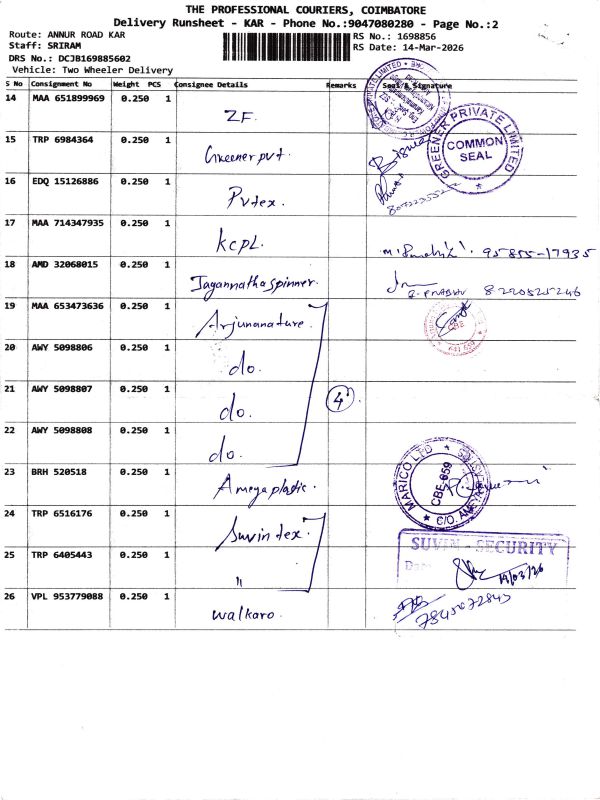 THE PROFESSIONAL COURIERS, COIMBATORE
Delivery Runsheet - KAR - Phone No.:9047080280 - Page No.:2
Route: ANNUR ROAD KAR
RS No.: 1698856
Staff: SRIRAM
RS Date: 14-Mar-2026
DRS No.: DCJB169885602
Vehicle: Two Wheeler Delivery
S No Consignment No Weight PCS Consignee Details Remarks Seal & Signature
14 MAA 651899969 0.250 1 ZF.
15 TRP 6984364 0.250 1 Greener pvt.
GREENER PRIVATE LIMITED
COMMON SEAL
16 EDQ 15126886 0.250 1 Pvtex.
17 MAA 714347935 0.250 1 KCPL. 95855-17935
18 AMD 32068015 0.250 1 Jagannatha spinner. 8220525246
19 MAA 653473636 0.250 1 Arjunanature.
20 AWY 5098806 0.250 1 do.
21 AWY 5098807 0.250 1 do. 4
22 AWY 5098808 0.250 1 do.
23 BRH 520518 0.250 1 Amegaplastic.
MARICO LTD
CBE-659
24 TRP 6516176 0.250 1 Suvintex.
SUVIN - SECURITY
25 TRP 6405443 0.250 1 " 14/03/26
26 VPL 953779088 0.250 1 Walkaro. 7845072845